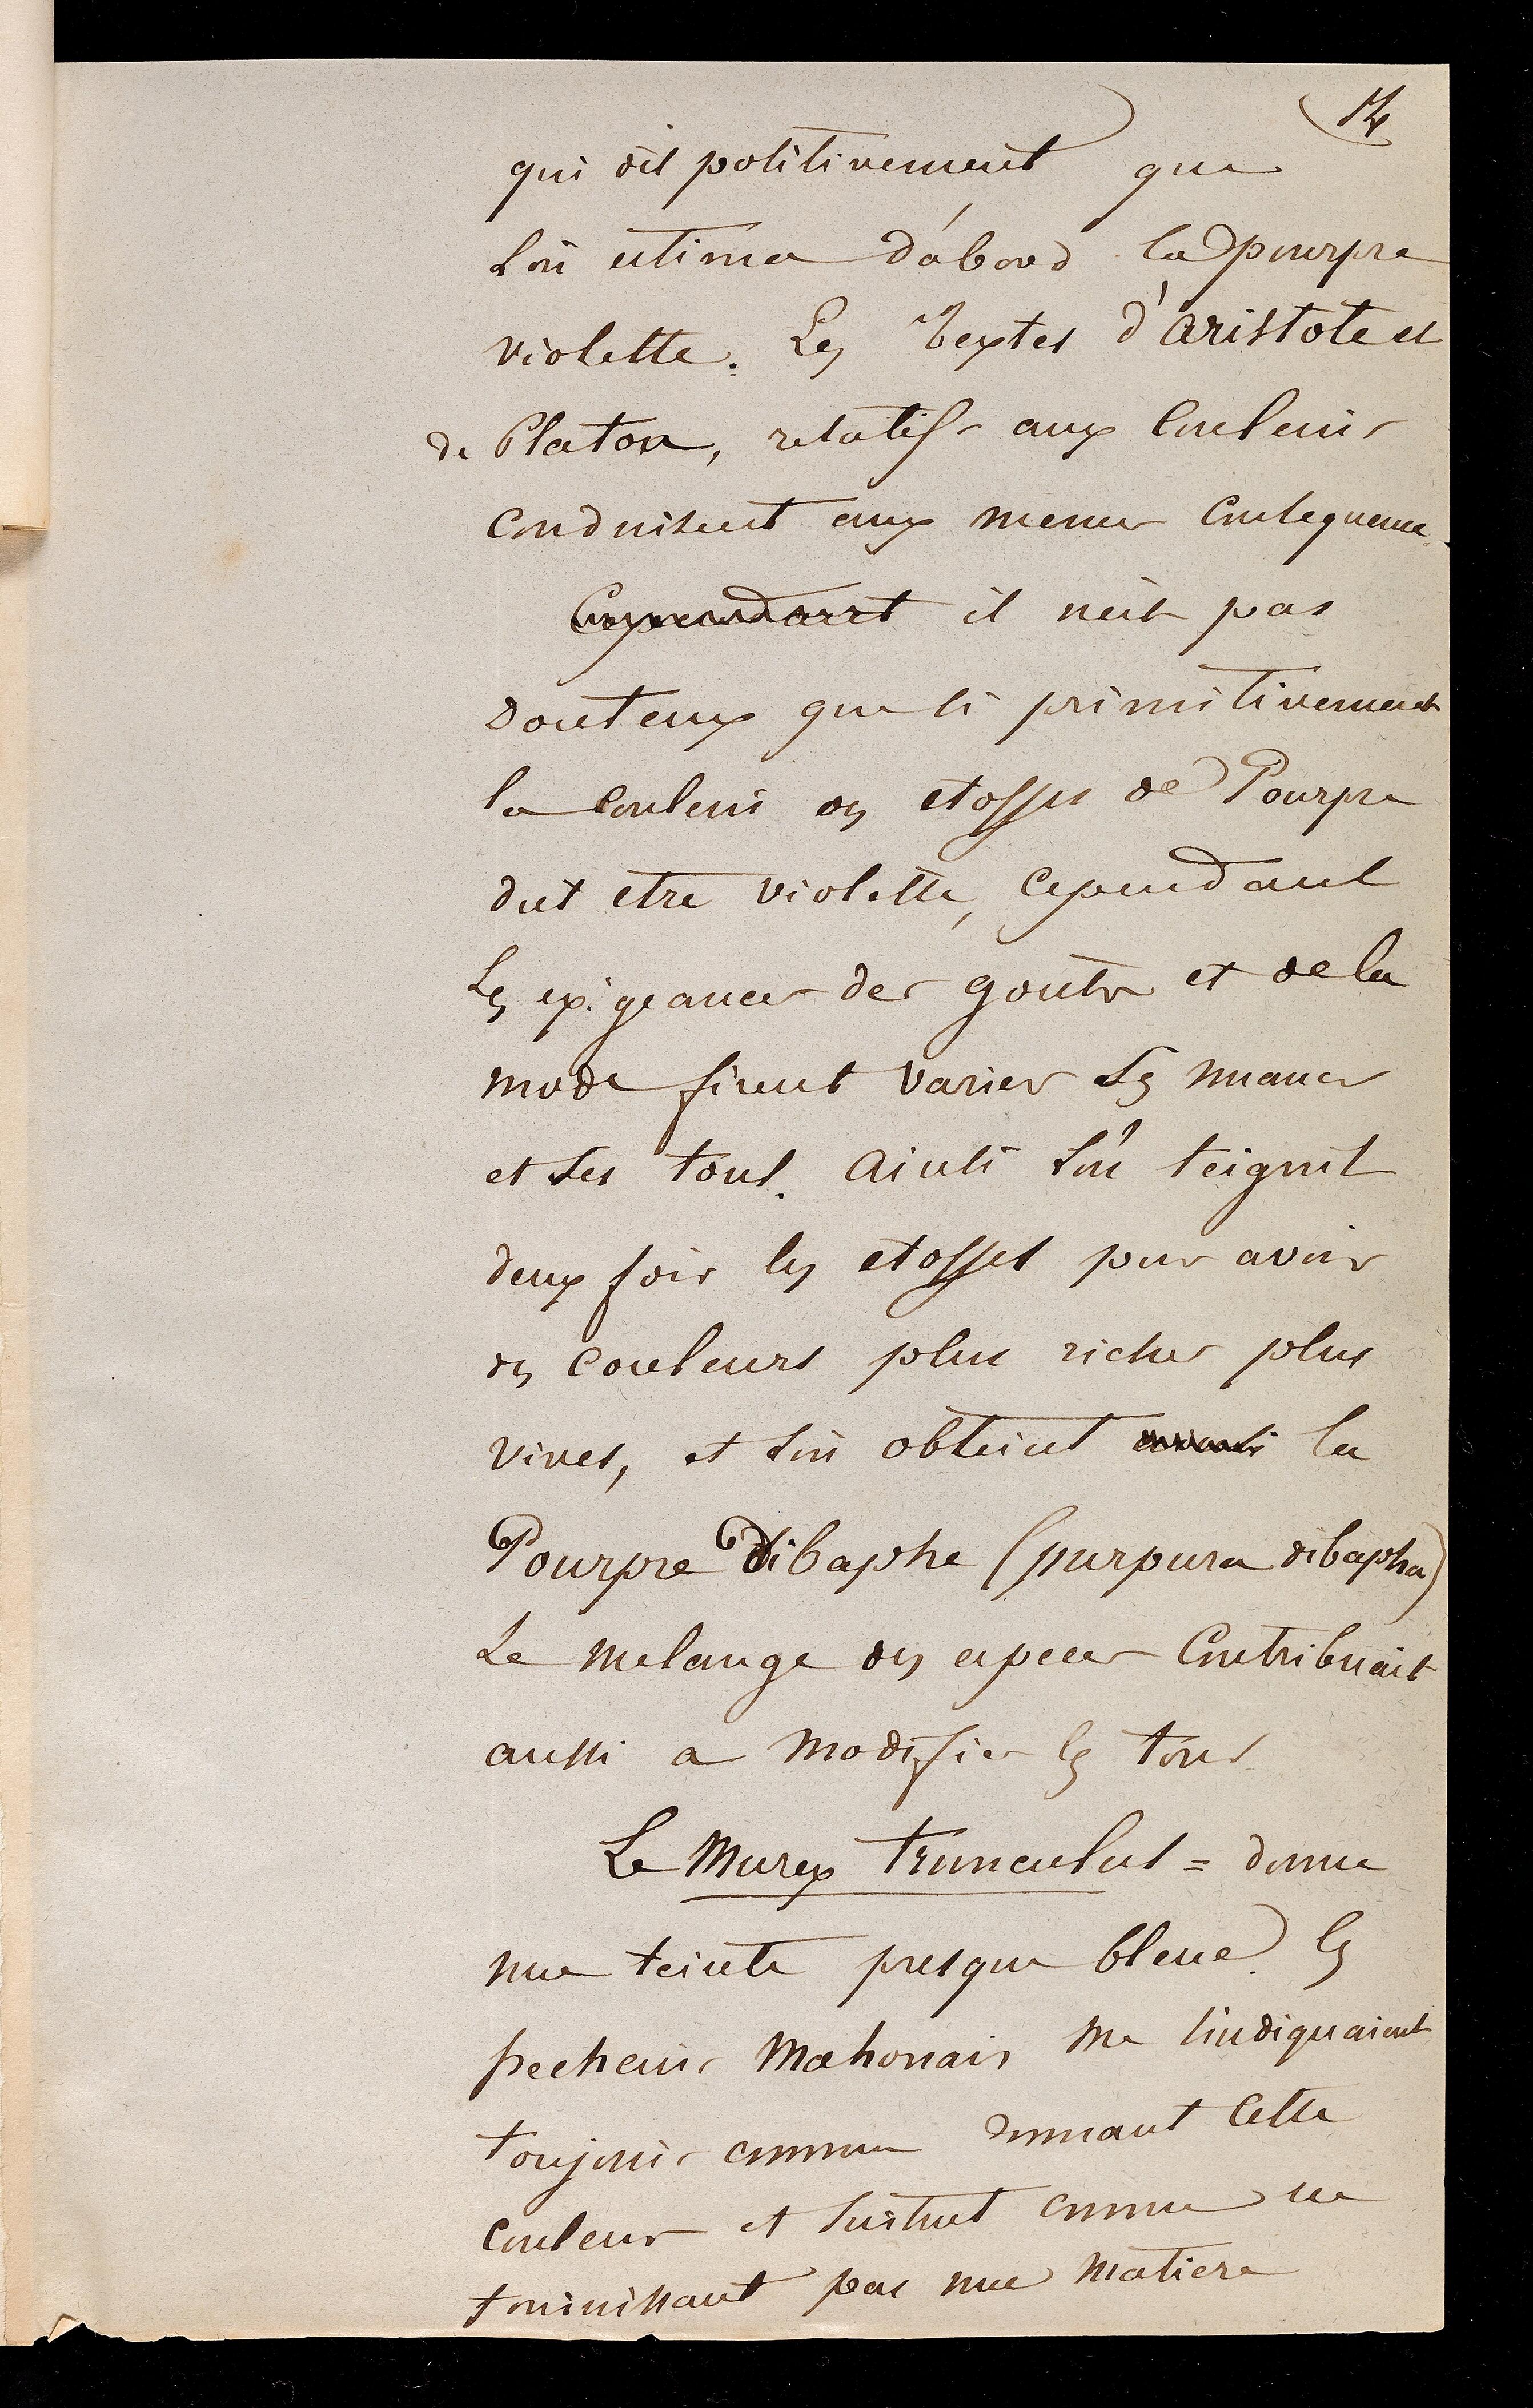 14
qui dit positivement que
l'on estima d'abord la pourpre
violette. Les textes d'aristote et
de Platon, relatifs aux couleurs
conduisent aux memes consequences.
Cependant il n'est pas
douteux que si primitivement
la couleur des etoffes de Pourpre
dut etre violette, cependant
les exigeances des gouts et de la
mode firent varier les nuances
et les tons. ainsi l'on teignit
deux fois les etoffes pour avoir
des couleurs plus riches plus
vives, et l'on obtint ainsi la
Pourpre dibaphe (purpura dibapha)
Le melange des especes contribuait
aussi a modifier les tons
Le Murex trunculus = donne
une teinte presque bleue. les
pecheurs Mahonais me l'indiquaient
toujours comme donnant cette
couleur et surtout comme ne
fournissant pas une matiere